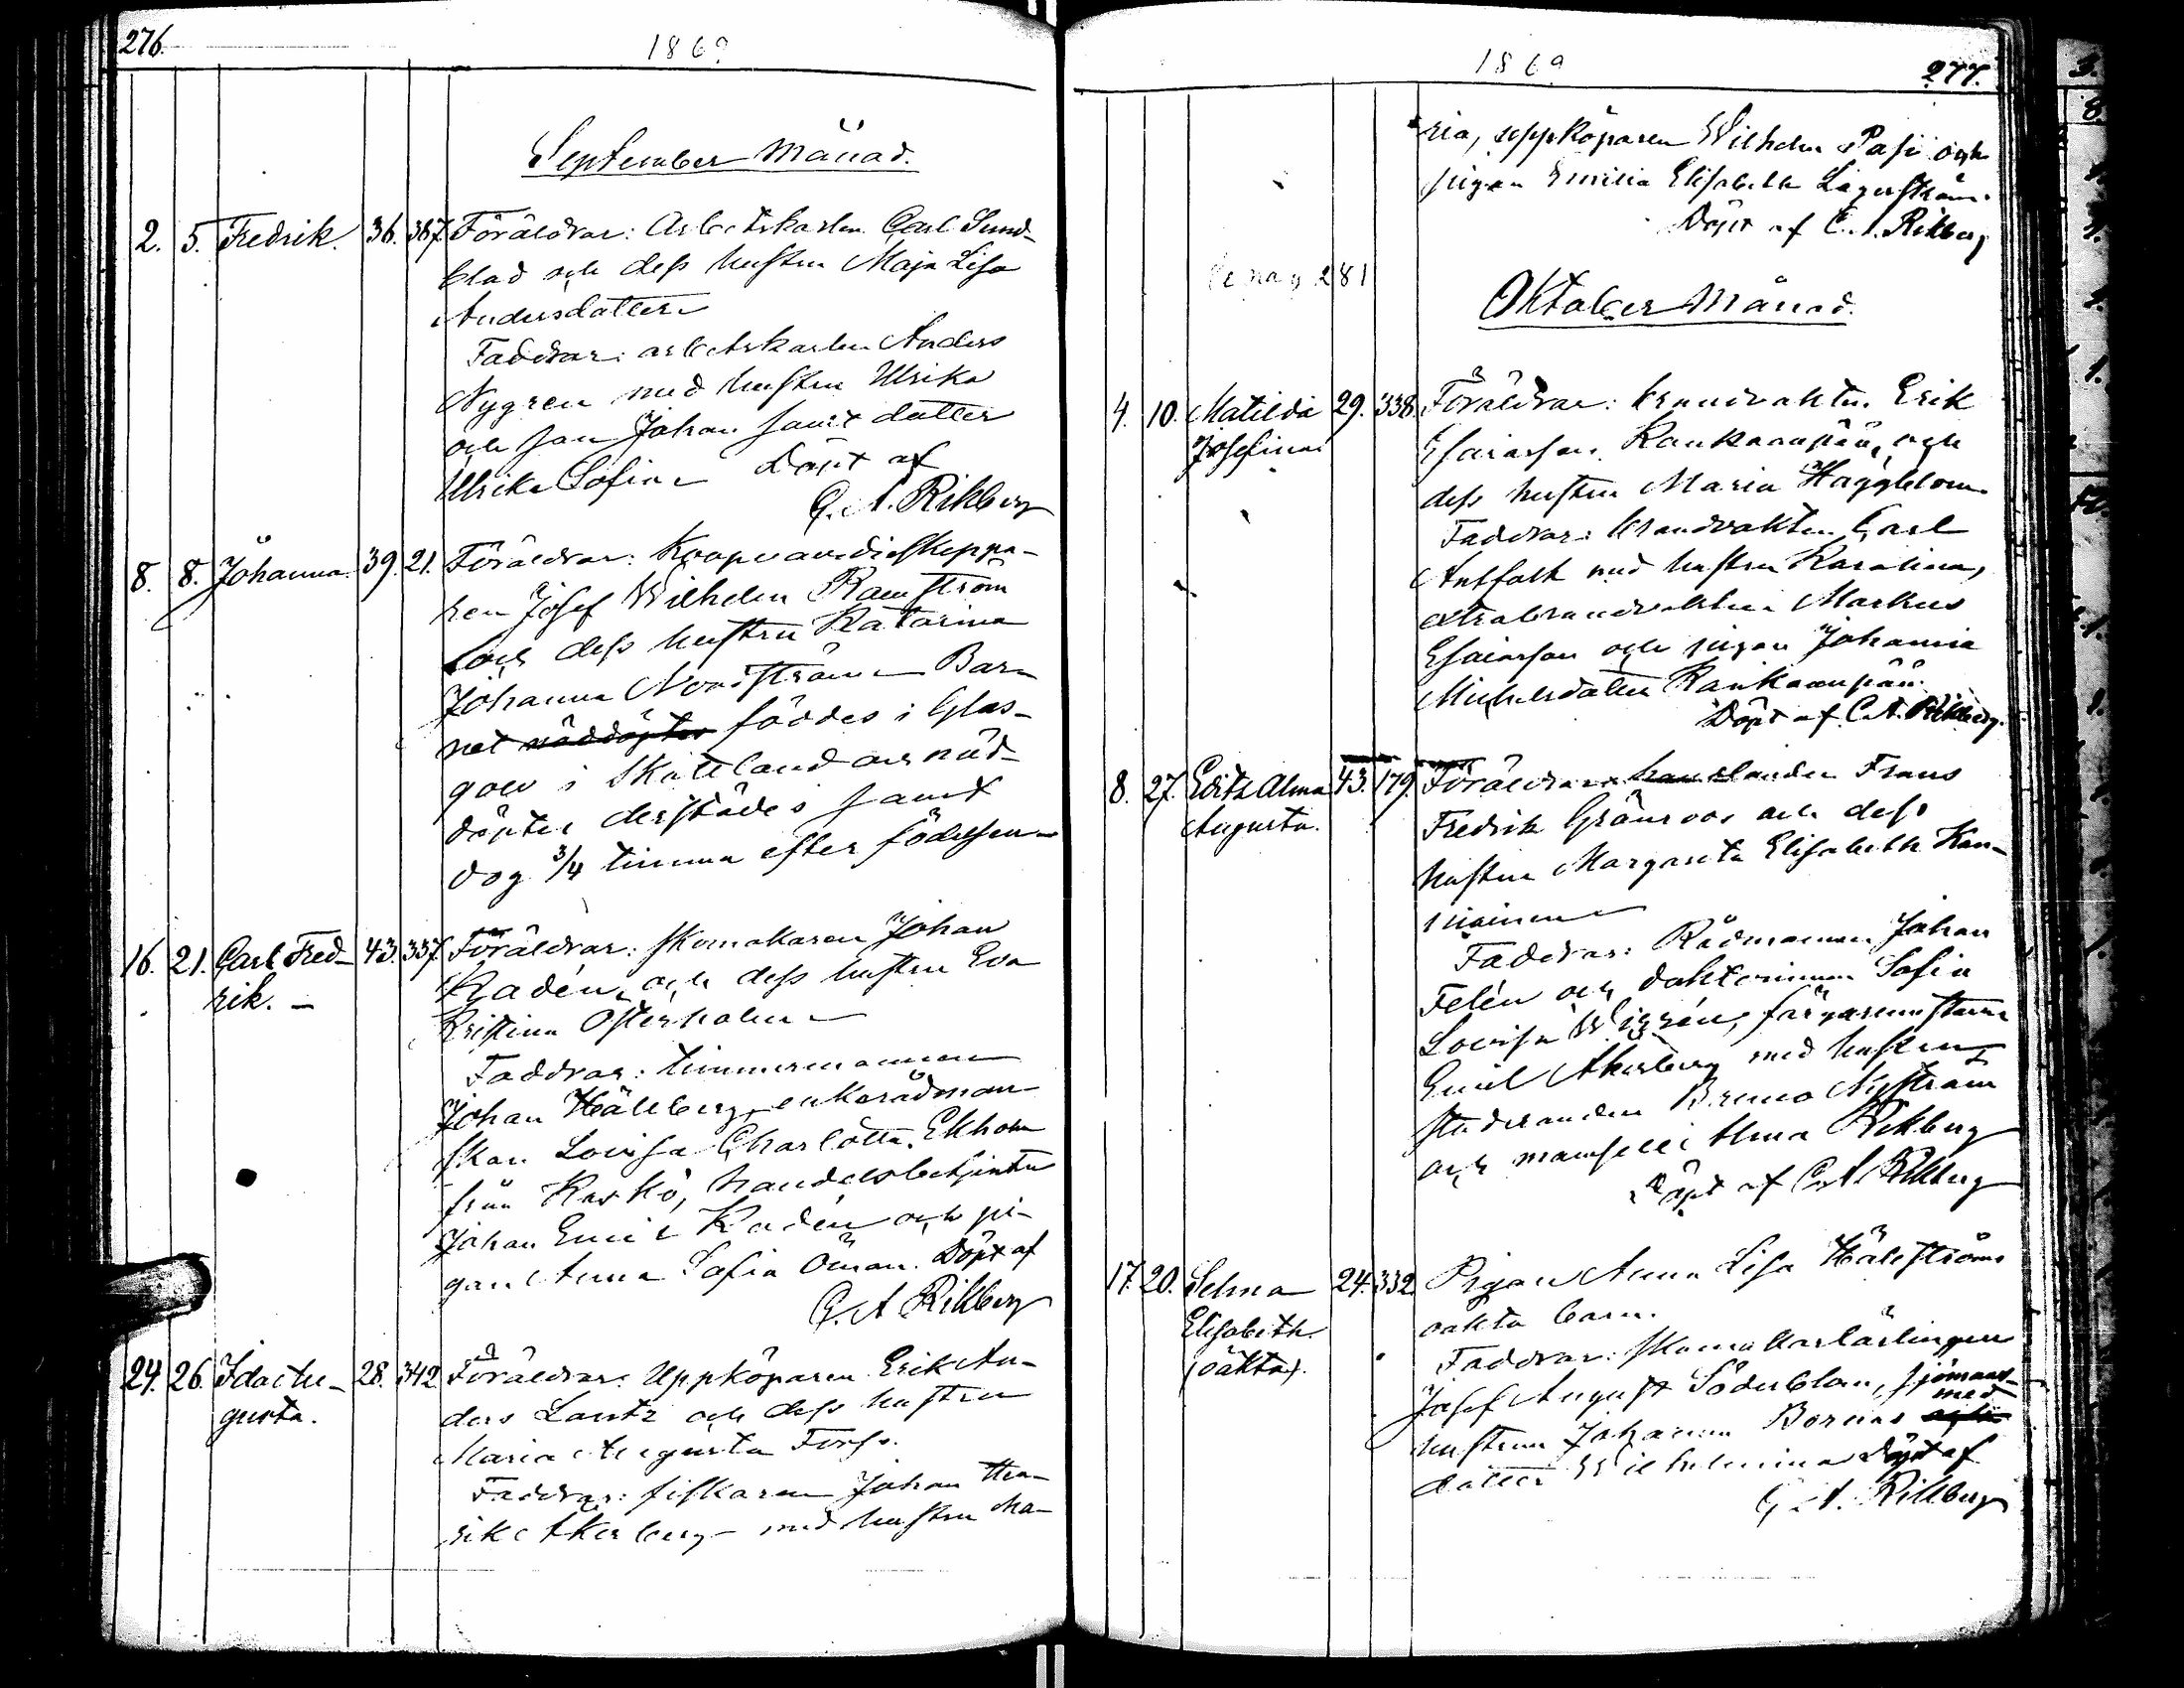 276.
1869
September Månad.
2. 5. Fredrik. 36. 367. Föräldrar: Arbetskarlen Carl Sund-
blad och dess hustru Maja Lisa
Andersdotter
Faddrar: arbetskarlen Anders
Nygren med hustru Ulrika
och son Johan samt dotter
Ulrika Sofia Döpt af
C. A. Rikberg
8. 8. Johanna. 39. 21. Föräldrar: Koopvaerdieskeppa-
ren Josef Wilhelm Ramström
och dess hustru Katarina
Johanna Nordström Bar-
net nöddöptes föddes i Glas-
gow i Skottland och nöd-
döptes derstädes samt
dog 3/4 timma efter födelsen
16. 21. Carl Fred- 43. 337. Föräldrar: skomakaren Johan
rik. - Kadén och dess hustru Eva
Kristina Österholm
Faddrar: timmermannen
Johan Hällberg, enkerådman-
skan Lovisa Charlotta Ekholm
från Kaskö, handelsbetjenten
Johan Emil Kadén och pi-
gan Anna Sofia Öman. Döpt af
C. A. Rikberg
24. 26. Ida Au- 28. 342. Föräldrar: Uppköparen Erik An-
gusta. ders Lantz och dess hustru
Maria Augusta Forss.
Faddrar: fiskaren Johan Hen-
rik Åkerberg med hustru Ma-
1869
277.
ria, uppköparen Wilhelm Pasi och
pigan Emilia Elisabeth Lagerström.
Döpt af C. A. Rikberg
Se pag 281
Oktober Månad.
4. 10. Matilda 29. 338. Föräldrar: brandvakten Erik
Josefina Esaiasson Kankaanpää, och
dess hustru Maria Häggblom
Faddrar: brandvakten Carl
Antfolk med hustru Karolina,
extrabrandvakten Markus
Esaiasson och pigan Johanna
Michelsdotter Kankaanpää.
Döpt af C. A. Rikberg.
8. 27. Edith Alma 43. 179. Föräldrar: handlanden Frans
Augusta. Fredrik Grönroos och dess
hustru Margareta Elisabeth Kan-
niainen
Faddrar: Rådmannen Johan
Felén och doktorinnan Sofia
Lovisa färgaremästaren
Emil Åkerberg med hustru,
studeranden Bruno Nyström
och mamsell Alma Rikberg
Döpt af C. A. Rikberg
17. 20. Selma 24. 332. Pigan Anna Lisa Hällströms
Elisabeth oäkta barn.
(oäkta). Faddrar: skomakarlärlingen
Josef August Söderblom, sjömans-
hustrun Johanna Bornäs med
dotter Wilhelmina Döpt af
C. A. Rikberg